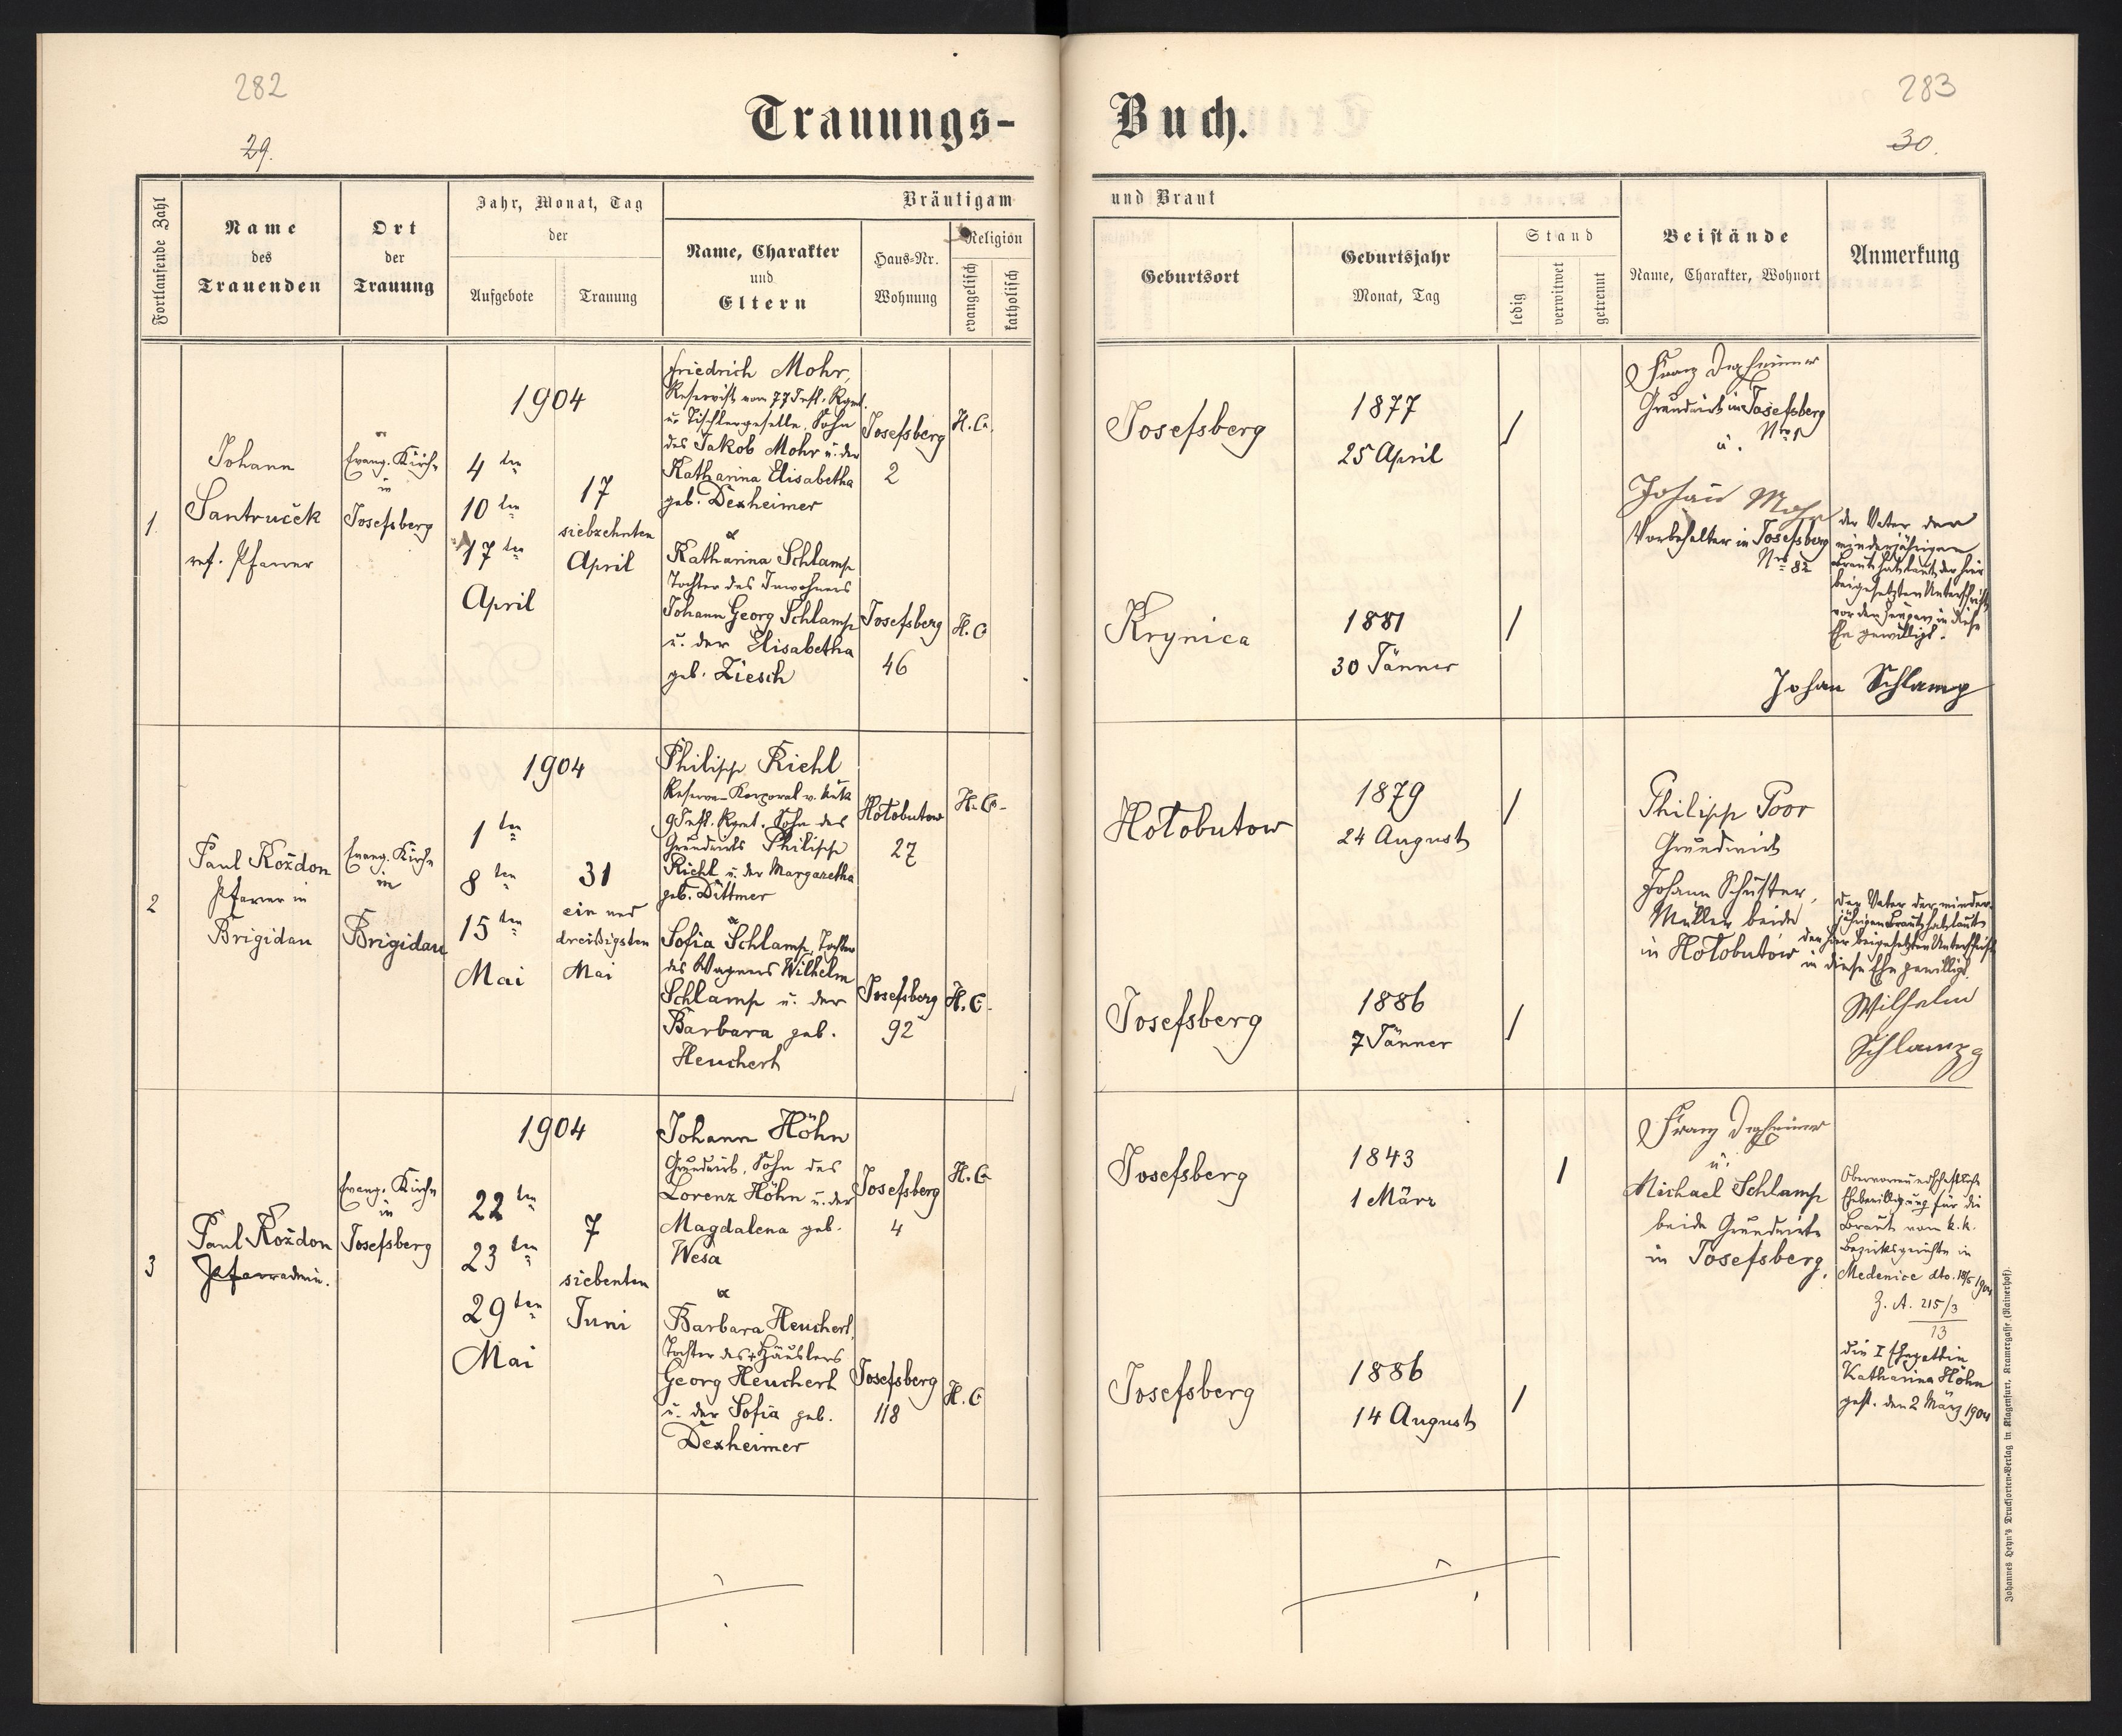 282
29.
Trauungs-
Fortlaufende Zahl
Name
des
Trauenden
Ort
der
Trauung
Jahr, Monat, Tag
der
Aufgebote
Trauung
Bräutigam
Name, Charakter
und
Eltern
Haus-Nr.
Wohnung
Religion
evangelisch
katholisch
1.
Johann
Santruček
ref. Pfarrer
Evang. Kirche
in
Josefsberg
1904
4 ten
10 ten
17 ten
April
17
siebzehnten
April
Friedrich Mohr,
Reservist vom 77 Inft. Rgmt.
u. Tischlergeselle, Sohn
des Jakob Mohr u. der
Katharina Elisabetha
geb. Dexheimer
Josefsberg
2
H. C.
&
Katharina Schlamp
Tochter des Inwohners
Johann Georg Schlamp
u. der Elisabetha
geb. Ziesch
Josefsberg
46
H. C
2
Paul Kożdon
Pfarrer in
Brigidau
Evang. Kirche
in
Brigidau
1904
1 ten
8 ten
15 ten
Mai
31
ein und
dreißigsten
Mai
Philipp Riehl
Reserve-Korporal v. kuk
9 Inft. Rgmt. Sohn des
Grundwirts Philipp
Riehl u. der Margaretha
geb. Dittmer
Hołobutow
27
H. C.
&
Sofia Schlamp, Tochter
des Wagners Wilhelm
Schlamp u. der
Barbara geb.
Heuchert
Josefsberg
92
H. C.
3
Paul Kożdon
Pfarradmin.
Evang. Kirche
in
Josefsberg
1904
22 ten
23 ten
29 ten
Mai
7
siebenten
Juni
Johann Höhn
Grundwirt, Sohn des
Lorenz Höhn u. der
Magdalena geb.
Wesa
Josefsberg
4
H. C
&
Barbara Heuchert,
Tochter des + Häuslers
Georg Heuchert
u. der Sofia geb.
Dexheimer
Josefsberg
118
H. C
283
30.
Buch.
und Braut
Geburtsort
Geburtsjahr
Monat, Tag
Stand
ledig
verwitwet
getrennt
Beistände
Name, Charakter, Wohnort
Anmerkung
Josefsberg
1877
25 April
/
Franz Dexheimer
Grundwirt in Josefsberg
Nro 1
u.
Johann Mohr
Vorbehalter in Josefsberg
Nro 82
Krynica
1881
30 Jänner
/
der Vater der
minderjährigen
Braut hat laut der hier
beigesetzten Unterschrift
vor den Zeugen in diese
Ehe gewilligt.
Johan Schlamp
Hołobutow
1879
24 August
/
Philipp Poor
Grundwirt
Johann Schuster,
Müller beide
in Hołobutów
Josefsberg
1886
7 Jänner
/
Der Vater der minder-
jährigen Braut hat laut
der hier beigesetzten Unterschrift
in diese Ehe gewilligt.
Wilhelm
Schlamp
Josefsberg
1843
1 März
/
Franz Dexheimer
u.
Michael Schlamp
beide Grundwirte
in Josefsberg.
Josefsberg
1886
14 August
/
Obervormundschaftliche
Ehebewilligung für die
Braut vom k.k.
Bezirksgerichte in
Medenice dto. 18/5 1904
Z. A. 215/3
13
die I Ehegattin
Katharina Höhn
gest. den 2 März 1904
Johannes Heyn's Drucksorten-Verlag in Klagenfurt, Kramergasse (Rainerhof).